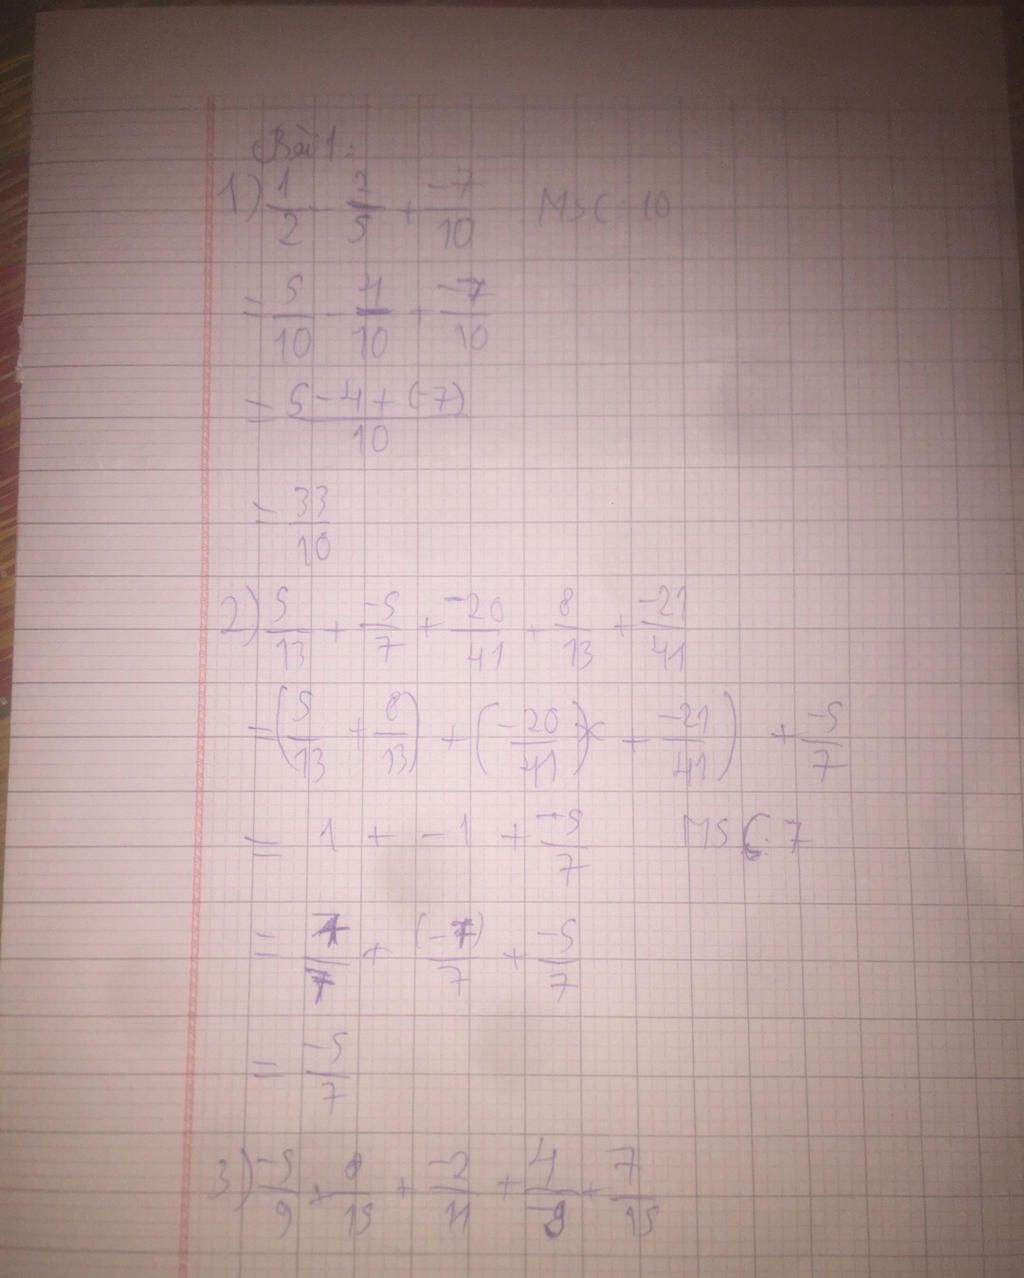 Bài 1:
1) 1/2 - 2/5 + -7/10 MSC: 10
= 5/10 - 4/10 + -7/10
= 5 - 4 + (-7)/10
= 33/10
2) 5/13 + -5/7 + -20/41 + 8/13 + -21/41
= (5/13 + 8/13) + (-20/41) + -21/41) + -5/7
= 1 + -1 + -5/7 MSC: 7
= 7/7 + (-7)/7 + -5/7
= -5/7
3) -5/9 + 8/15 + -2/11 + 4/-9 + 7/15